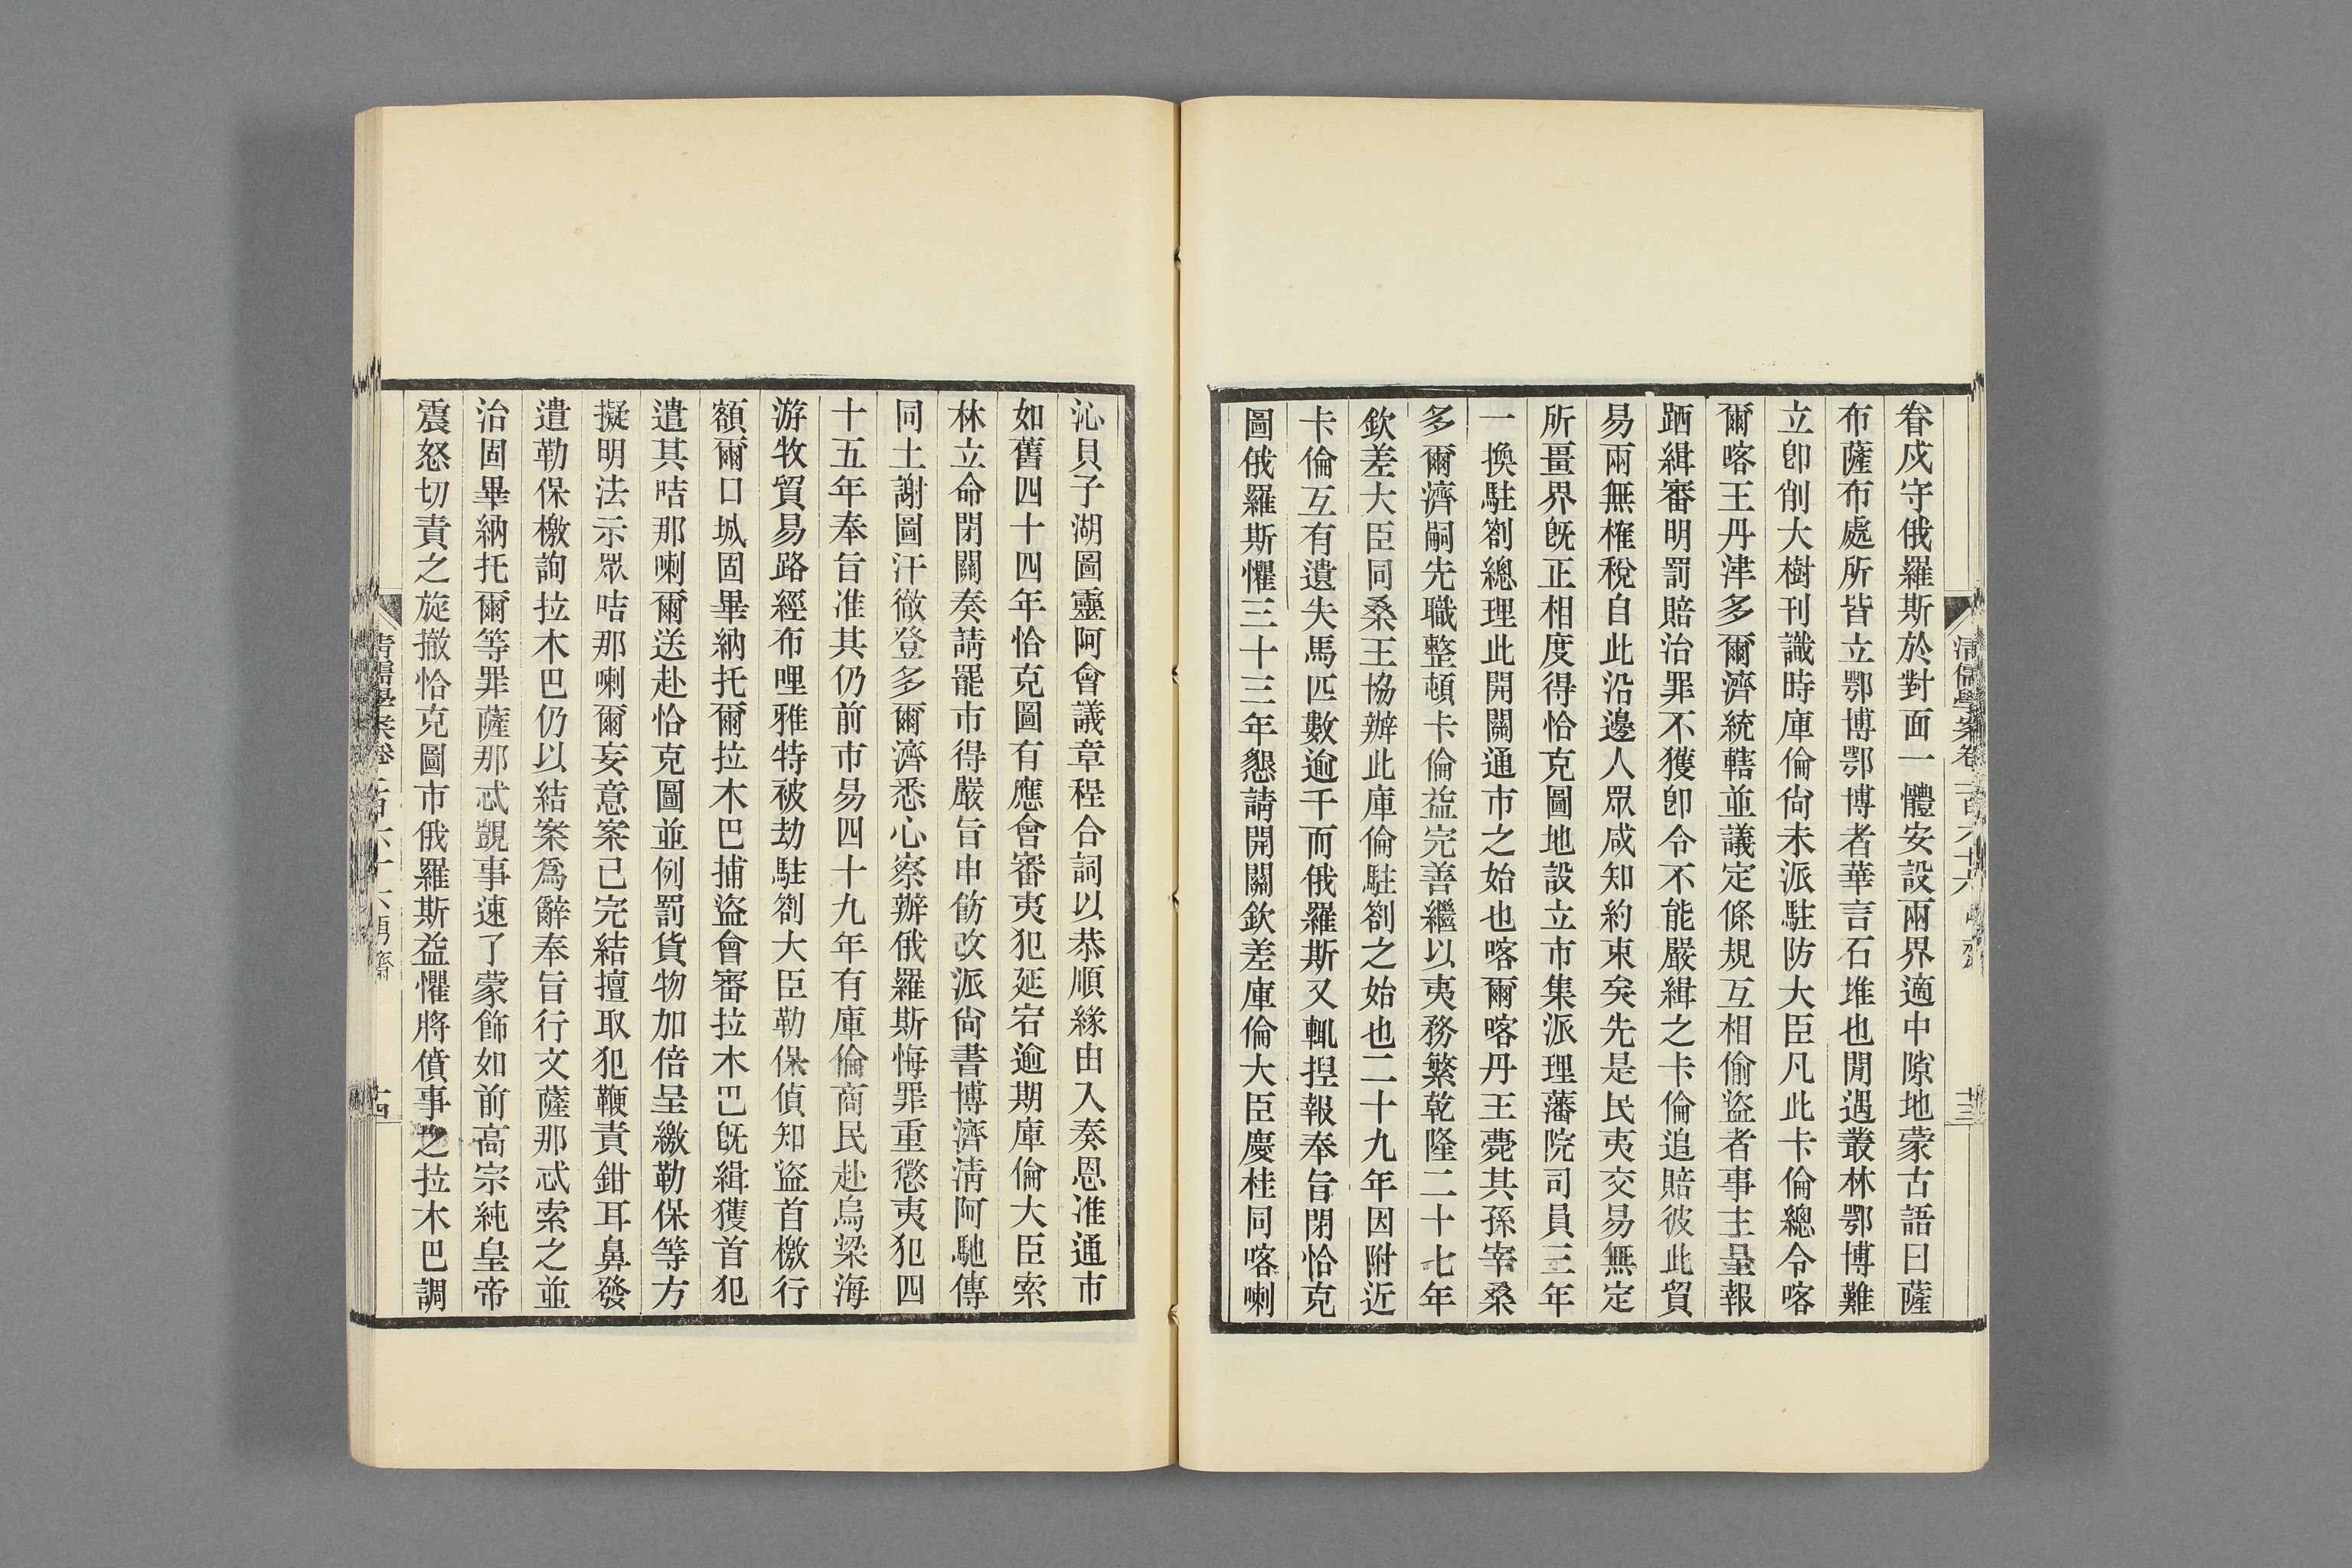 清儒學案卷一百六十六 㐆齋 十三
眷戍守俄羅斯於對面一體安設兩界適中隙地蒙古語曰薩
布薩布處所皆立鄂博鄂博者華言石堆也閒遇叢林鄂博難
立卽削大樹刊識時庫倫尙未派駐防大臣凡此卡倫總令喀
爾喀王丹津多爾濟統轄並議定條規互相偷盜者事主呈報
跴緝審明罰賠治罪不獲卽令不能嚴緝之卡倫追賠彼此貿
易兩無榷稅自此沿邊人眾咸知約束矣先是民夷交易無定
所畺界旣正相度得恰克圖地設立市集派理藩院司員三年
一換駐劄總理此開關通市之始也喀爾喀丹王薨其孫宰桑
多爾濟嗣先職整頓卡倫益完善繼以夷務繁乾隆二十七年
欽差大臣同桑王協辦此庫倫駐劄之始也二十九年因附近
卡倫互有遺失馬匹數逾千而俄羅斯又輒捏報奉旨閉恰克
圖俄羅斯懼三十三年懇請開關欽差庫倫大臣慶桂同喀喇
沁貝子湖圖靈阿會議章程合詞以恭順緣由入奏恩准通市
如舊四十四年恰克圖有應會審夷犯延宕逾期庫倫大臣索
林立命閉關奏請罷市得嚴旨申飭改派尙書博濟淸阿馳傳
同土謝圖汗徹登多爾濟悉心察辦俄羅斯悔罪重懲夷犯四
十五年奉旨准其仍前市易四十九年有庫倫商民赴烏梁海
游牧貿易路經布哩雅特被劫駐劄大臣勒保偵知盜首檄行
額爾口城固畢納托爾拉木巴捕盜會審拉木巴旣緝獲首犯
遣其咭那喇爾送赴恰克圖並例罰貨物加倍呈繳勒保等方
擬明法示眾咭那喇爾妄意案已完結擅取犯鞭責鉗耳鼻發
遣勒保檄詢拉木巴仍以結案爲辭奉旨行文薩那忒索之並
治固畢納托爾等罪薩那忒覬事速了蒙飾如前高宗純皇帝
震怒切責之旋撤恰克圖市俄羅斯益懼將僨事之拉木巴調
清儒學案卷一百六十六 十四